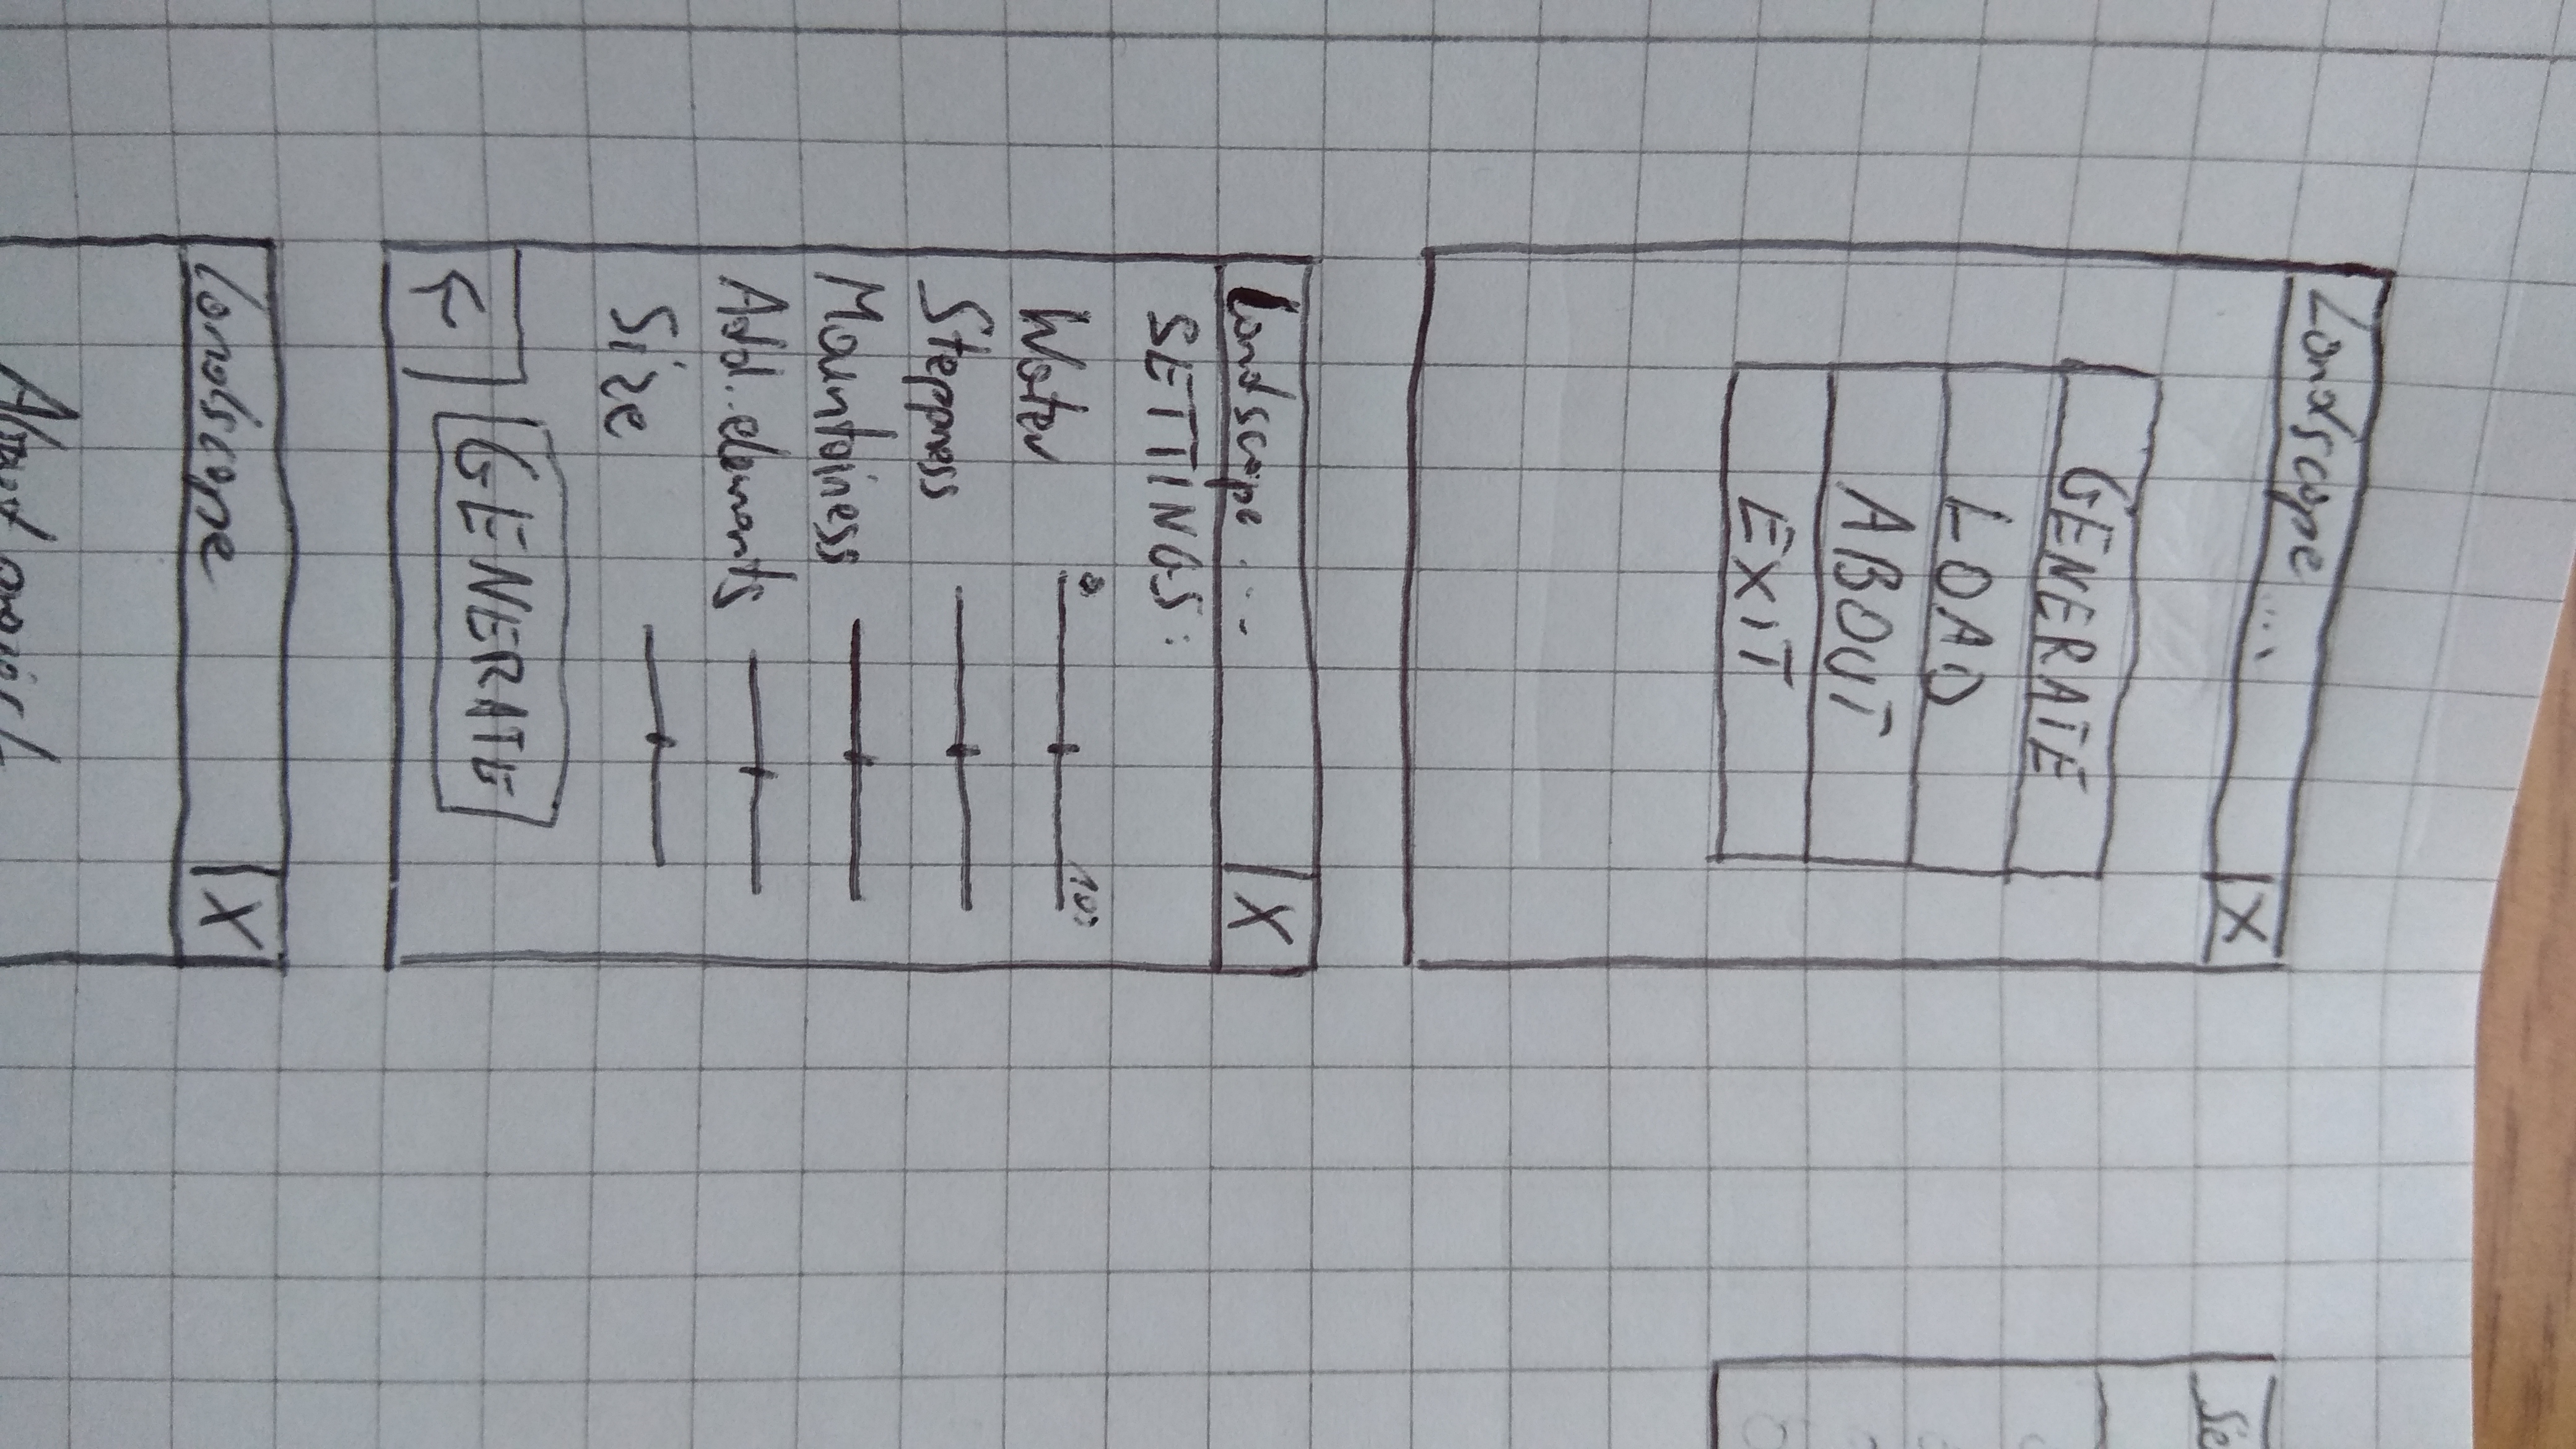 Landscape ... X
GENERATE
LOAD
ABOUT
EXIT
Landscape ... X
SETTINGS:
Water 0 100
Steppness
Mountainess
Add. elements
Size
← GENERATE
Landscape X
About project
Se